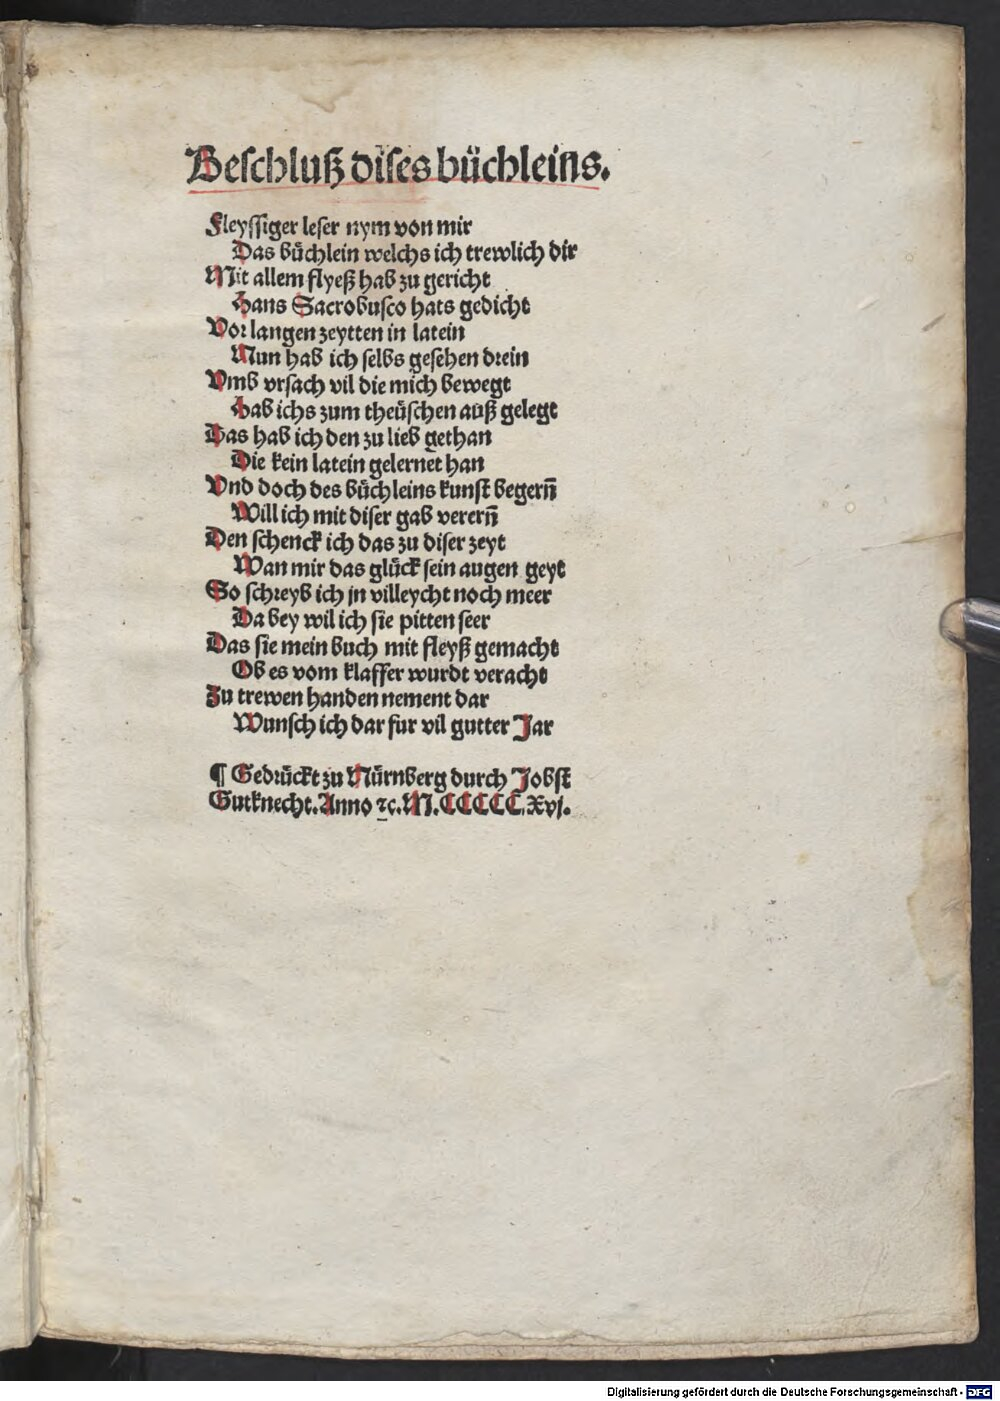 Beſchluß diſes büchleins.
Fleyſſiger leſer nym von mir
Das bu̇chlein welchs ich trewlich dir
Mit allem flyeß hab zu gericht
Hans Sacrobuſco hats gedicht
Vor langen zeytten in latein
Nun hab ich ſelbs geſehen drein
Vmb vrſach vil die mich bewegt
Hab ichs zum theüſchen auß gelegt
Das hab ich den zu lieb gethan
Die kein latein gelernet han
Vnd doch des büchleins kunſt begern̄
Will ich mit diſer gab verern̄
Den ſchenck ich das zu diſer zeyt
Wan mir das glück ſein augen geyt
So ſchreyb ich jn villeycht noch meer
Da bey wil ich ſie pitten ſeer
Das ſie mein buch mit fleyß gemacht
Ob es vom klaffer wurdt veracht
Zu trewen handen nement dar
Wunſch ich dar fur vil gutter Jar
¶ Gedrückt zu Nürnberg durch Jobſt
Gutknecht. Anno ⁊c. M.CCCCC.Xvj.
Digitalisierung gefördert durch die Deutsche Forschungsgemeinschaft - DFG